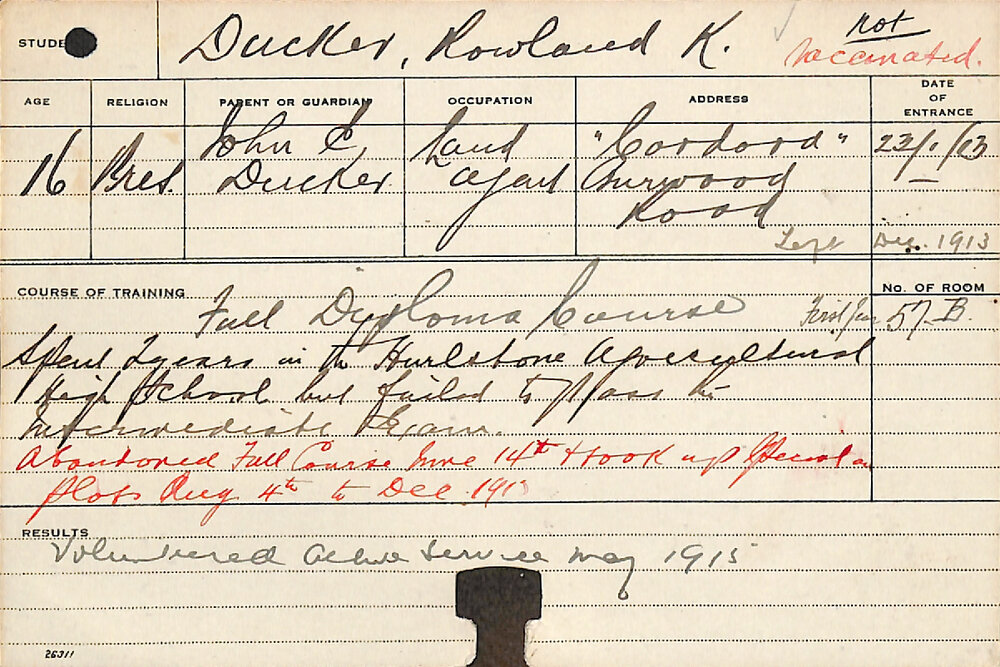 STUDE
Ducker, Rowland K.
not
vaccinated.
AGE
RELIGION
PARENT OR GUARDIAN
OCCUPATION
ADDRESS
DATE
OF
ENTRANCE
16
Pres.
John E.
Ducker
Land
agent
"Cordord"
Burwood
Road
23/1/13
Left Dec. 1913
COURSE OF TRAINING
No. OF ROOM
Full Diploma Course
First Year
57-B.
Spent 2 years in the Hurlstone Agricultural
High School but failed to pass the
Intermediate Exam.
Abandoned Full Course June 14th & took up Special
plots Aug 4th to Dec. 1913
RESULTS
Volunteered active service May 1915
26311